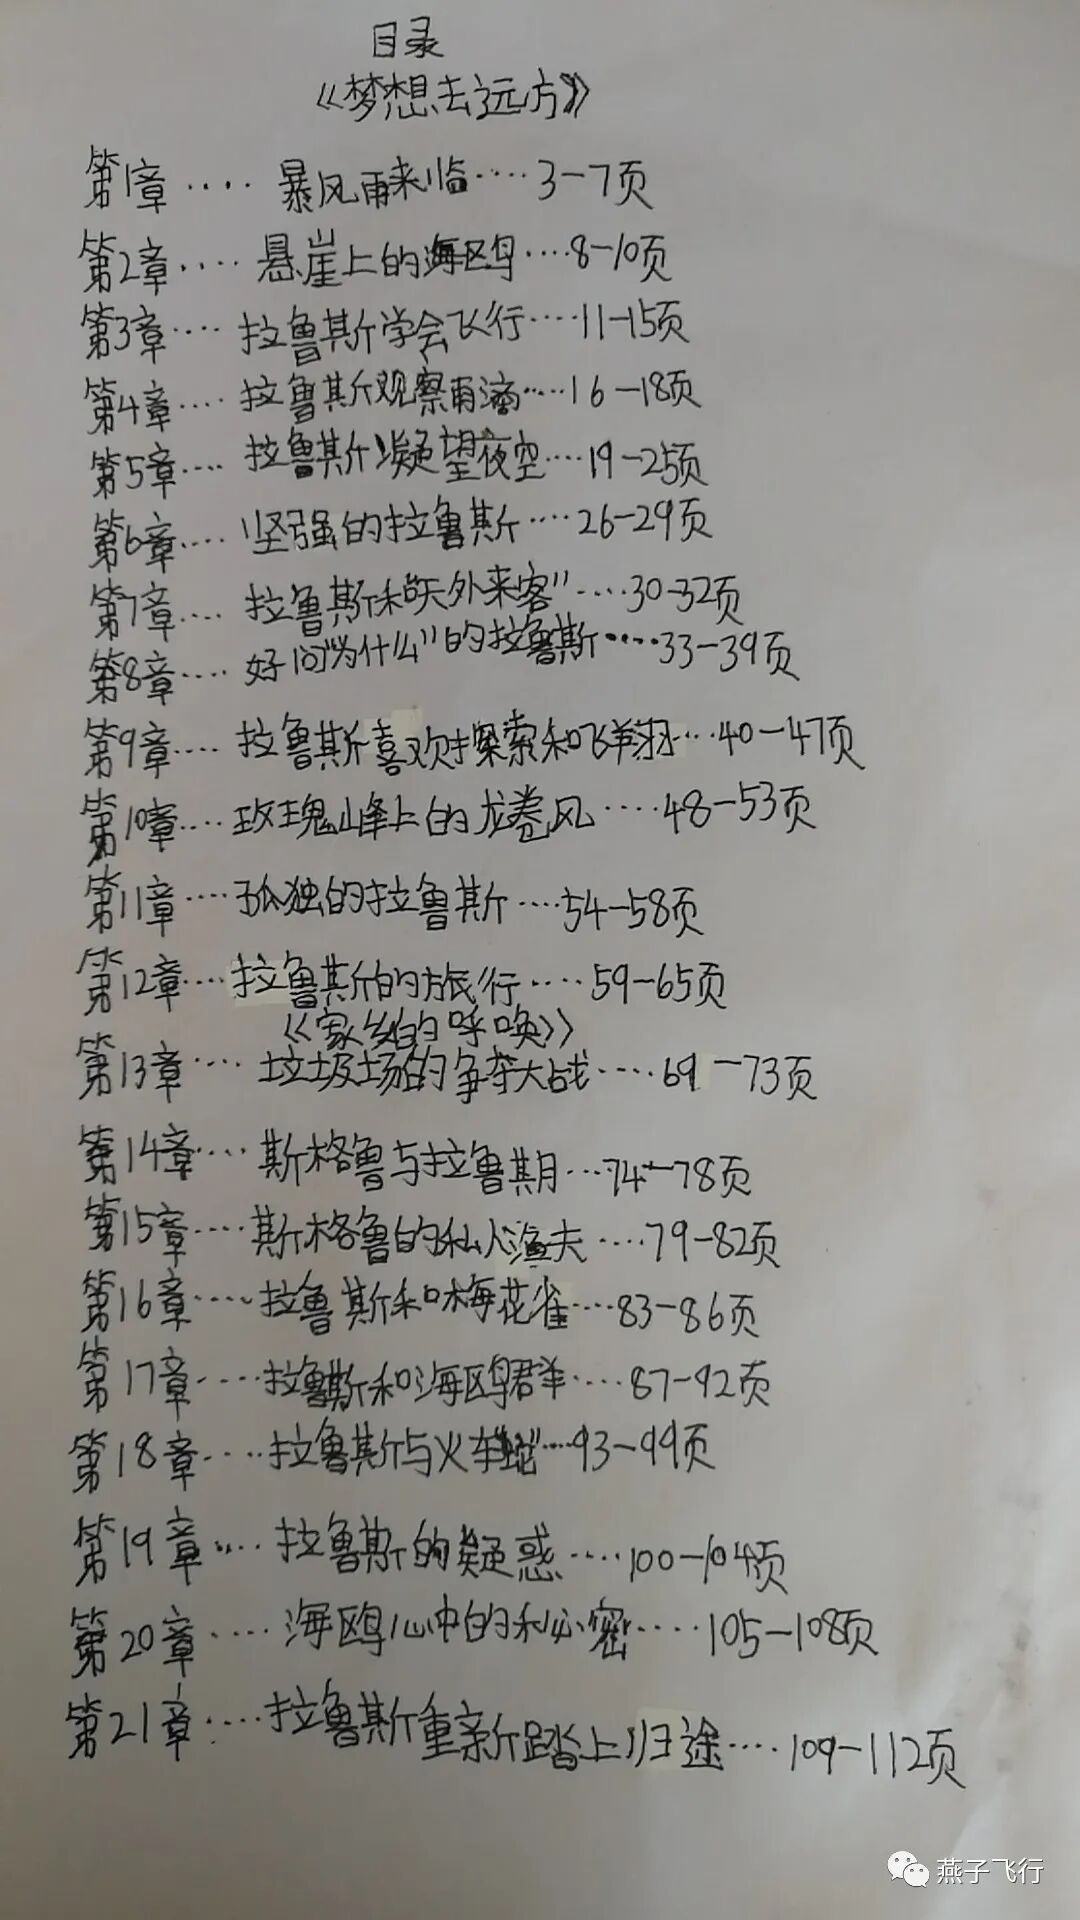 目录
《梦想去远方》
第1章····暴风雨来临····3-7页
第2章····悬崖上的海鸥····8-10页
第3章····拉鲁斯学会飞行····11-15页
第4章····拉鲁斯观察雨滴····16-18页
第5章····拉鲁斯凝望夜空····19-25页
第6章····坚强的拉鲁斯····26-29页
第7章····拉鲁斯和“天外来客”····30-32页
第8章····好问“为什么”的拉鲁斯····33-39页
第9章····拉鲁斯喜欢探索和飞翔····40-47页
第10章····玫瑰峰上的龙卷风····48-53页
第11章····孤独的拉鲁斯····54-58页
第12章····拉鲁斯的旅行····59-65页
《家乡的呼唤》
第13章····垃圾场的争夺大战····69-73页
第14章····斯格鲁与拉鲁斯····74-78页
第15章····斯格鲁的私人渔夫····79-82页
第16章····拉鲁斯和梅花雀····83-86页
第17章····拉鲁斯和海鸥群····87-92页
第18章····拉鲁斯与火车“蛇”····93-99页
第19章····拉鲁斯的疑惑····100-104页
第20章····海鸥心中的秘密····105-108页
第21章····拉鲁斯重新踏上归途····109-112页
燕子飞行